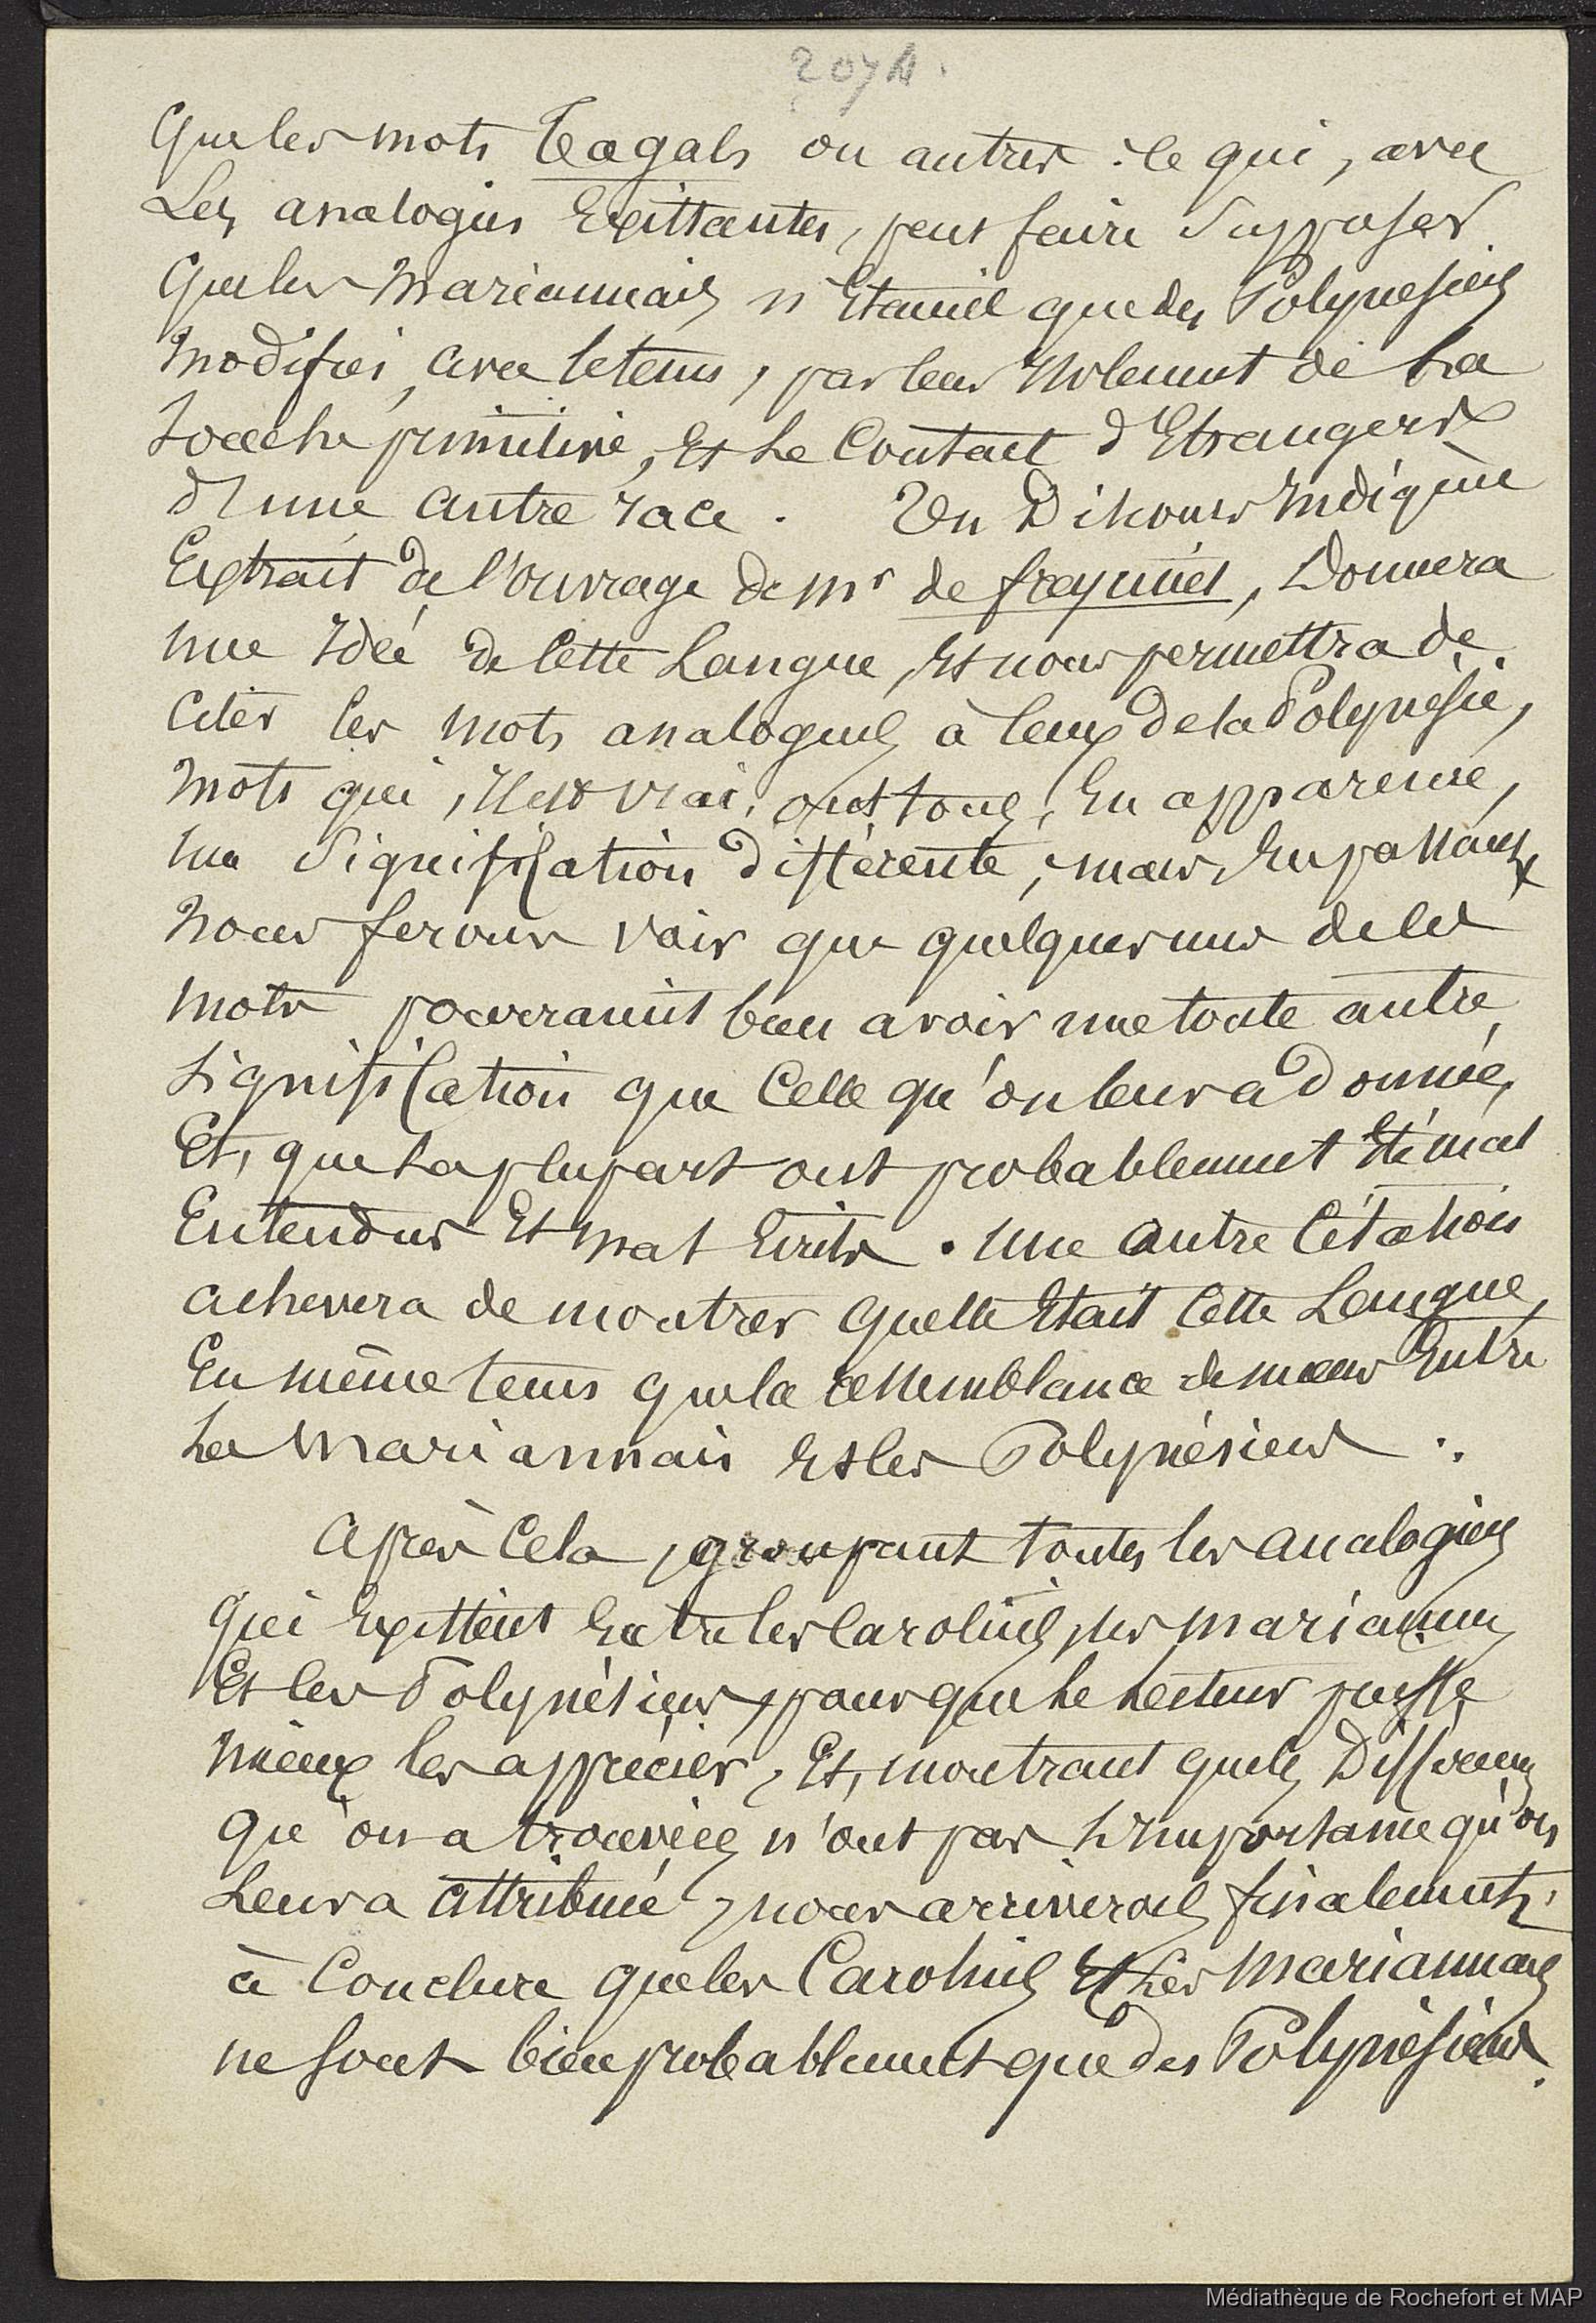 2074.
Que les mots Tagals ou autres : ce qui, avec
Les analogies Existantes, peut faire Supposer
Que les Mariannais n'Etaient que des Polynésiens
Modifiés, avec le tems, par leur Isolement de La
Souche primitive, Et Le Contact d'Etrangers
d'une autre race. Un Discours Indigène
Extrait de l'ouvrage de Mr de freycinet, Donnera
une Idée de Cette Langue, Et nous permettra de
Citer les Mots analogues à Ceux de la Polynésie,
Mots qui, Il est vrai, ont tous, En apparence,
une Signification différente, mais, En passant,
Nous ferons voir que quelques uns de ces
Mots pourraient bien avoir une toute autre
Signification que Celle qu'on leur a donnée,
Et, que La plupart ont probablement Eté mal
Entendus Et mal Ecrits. Une autre Citation
achevera de montrer quelle Etait Cette Langue,
En même tems que la ressemblance de mœurs Entre
Les Mariannais Et les Polynésiens.
Après Cela, groupant toutes les analogies
Qui Existent Entre les Carolins, les Mariannais
Et les Polynésiens, pour que Le Lecteur puisse
Mieux les apprécier, Et, montrant que les Différences
Qu'on a trouvées n'ont pas L'Importance qu'on
Leur a attribuée, nous arriverons finalement,
à Conclure que les Carolins Et Les Mariannais
ne Sont bien probablement que des Polynésiens.
Médiathèque de Rochefort et MAP